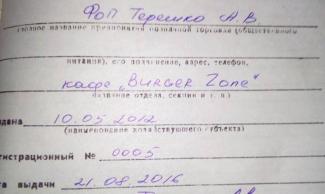 ФОП Терешко А.В.
(полное название предприятия розничной торговли (общественного
питания), его подчинение, адрес, телефон,
кафе „Burger Zone"
название отдела, секции и т. п.)
дана 10.05.2012
(наименование хозяйствующего субъекта)
гистрационный № 0005
та выдачи 21.08.2016